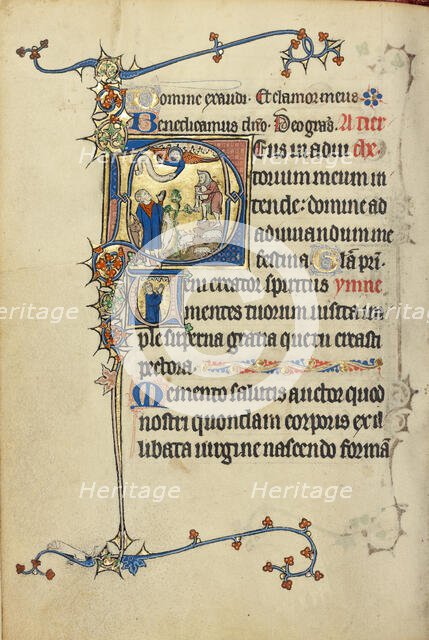 Domine exaudi. Et clamor meus
Benedicamus dño. Deo gras. A tier
Deus in adiu
torium meum in
tende: domine ad
adiuuandum me
festina. Glã pri.
Ueni creator spiritus ymne
mentes tuorum uisita im
ple superna gratia que tu creasti
pectora.
Memento salutis auctor quod
nostri quondam corporis ex il
libata uirgine nascendo formã
Heritage
Heritage
Heritage
Heritage
Heritage
Heritage
Heritage